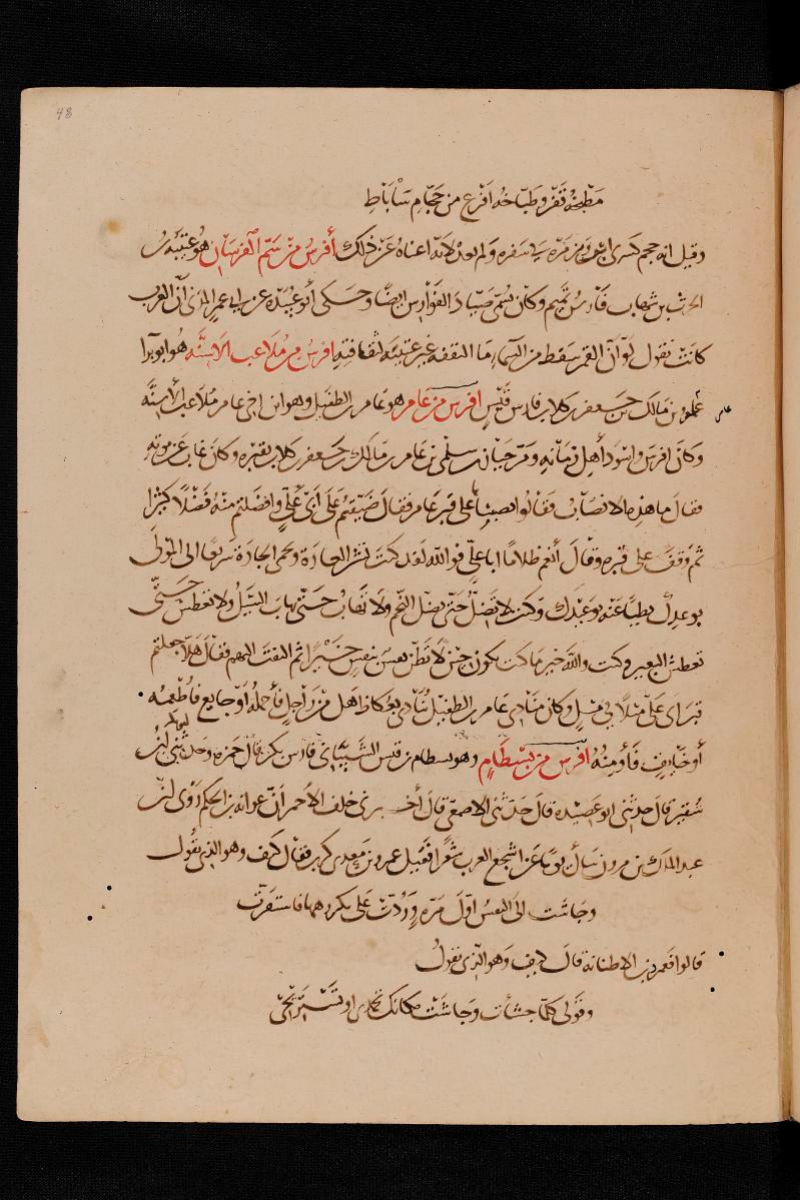 48
مَطْبخُهُ قَفْرٌ وطَبّاخُه افْرَغُ من حَجّامِ سَاباطِ
وقيل انه حجم كسرى ابرويز مرّه في سفره ولم يعد لانه اغناهُ عن ذلك أفرسُ من سمّ الفرسان هو عتيبة بن
الحرث بن شهاب فارسُ تميم وكان يُسمّى صيّاد الفوارس ايضًا وحكى أبو عبيدة عن ابي عمرٍو المدنى أنّ العرب
كانت تقول لَو أنّ القمر سَقط من السماء ما التقفه غير عتيبة لثقافته افرسُ من مُلاعب الاسنّه هو ابو برآ
عامر
عمرو بن مالك بن جعفر بن كلاب فارس قيس افرس من عامر هو عامر بن الطفيل وهو ابن اخى عامر مُلاعب الأسنّه
وكان افرس واسْوَد أهل زمانه ومرّ حيّان بن سلمى بن عامر بن مالك بن جعفر بن كلاب بقبره وكان غاب عن موته
فقال ما هذه الانصَابُ فقالوا نصبناها على قبر عامر فقال ضيّقتم على أبى عليّ وافضلتم منهُ فضلًا كثيرا
ثم وقف على قبره وقال أنعم ظلامًا ابا عليّ فو الله لقد كنت تشن الغارة وتحمى الجارة سريعًا الى المولى
بوعدك بطيًّا عنه بوعيدك وكنت لا تضلّ حتّى يضلّ النجم ولا تهابُ حتّى يهابَ السيل ولا تعطش حتّى
تعطش البعير وكنت والله خير ما كنت تكون حين لا تظنّ نفس بنفس خيْرًا ثم التفت اليهم فقال هلّا جعلتم
قبر ابى عليّ ميلًا في ميل وكان منادي عامر بن الطفيل يُنادي بعُكاظ هل من راجلٍ فأحملهُ أو جايع فأُطعمه
أو خايفٍ فأومنهُ افرس من بسطامٍ وهو بسطام بن قيس الشيبانى فارس بكر قال حمزه وحدثنى ابو بكر بن
شقير قال حدثنى ابو عصيده قال حدثنى الاصمعى قال أخبرنى خلف الأحمر أنّ عوانه بن الحكم روى ان
عبد الملك بن مرون سأل يومًا عن اشجع العرب شعرًا فقيل عمرو بن معدى كرب فقال كيف وهو الذي يقُول
وجاشت الىّ النفسُ اوّل مرّه ورُدّت على مكروهها فاستقرّت
قالوا فعمرو بن الاطنابة قال كيف وهو الذي يقولُ
وقولى كلّما جشأت وجاشت مكانك تحمدى او تستريحى